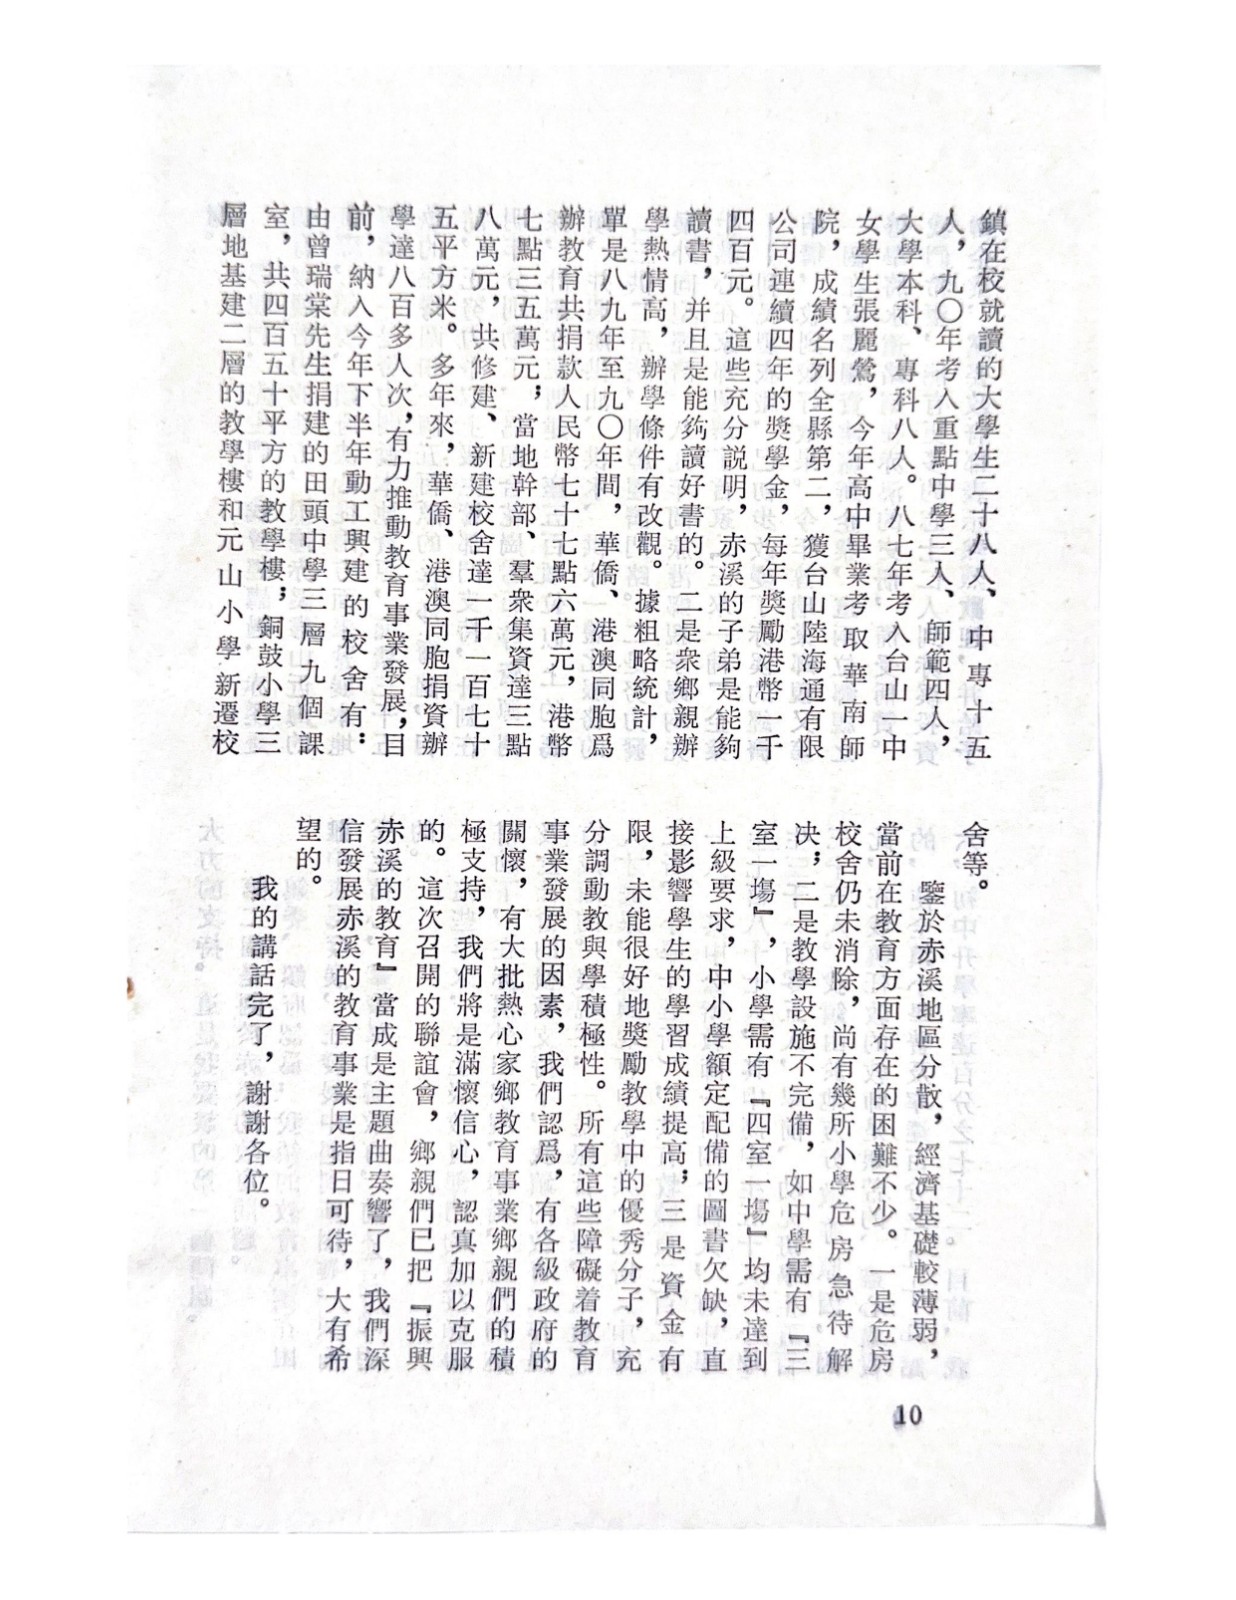 鎮在校就讀的大學生二十八人、中專十五
人，九〇年考入重點中學三人、師範四人，
大學本科、專科八人。八七年考入台山一中
女學生張麗鶯，今年高中畢業考取華南師
院，成績名列全縣第二，獲台山陸海通有限
公司連續四年的獎學金，每年獎勵港幣一千
四百元。這些充分説明，赤溪的子弟是能夠
讀書，并且是能夠讀好書的。二是衆鄉親辦
學熱情高，辦學條件有改觀。據粗略統計，
單是八九年至九〇年間，華僑、港澳同胞爲
辦教育共捐款人民幣七十七點六萬元，港幣
七點三五萬元，當地幹部、羣衆集資達三點
八萬元，共修建、新建校舍達一千一百七十
五平方米。多年來，華僑、港澳同胞捐資辦
學達八百多人次，有力推動教育事業發展，目
前，納入今年下半年動工興建的校舍有：
由曾瑞棠先生捐建的田頭中學三層九個課
室，共四百五十平方的教學樓；銅鼓小學三
層地基建二層的教學樓和元山小學新遷校
舍等。
鑒於赤溪地區分散，經濟基礎較薄弱，
當前在教育方面存在的困難不少。一是危房
校舍仍未消除，尚有幾所小學危房急待解
決；二是教學設施不完備，如中學需有『三
室一塲』，小學需有『四室一塲』均未達到
上級要求，中小學額定配備的圖書欠缺，直
接影響學生的學習成績提高；三是資金有
限，未能很好地獎勵教學中的優秀分子，充
分調動教與學積極性。所有這些障礙着教育
事業發展的因素，我們認爲，有各級政府的
關懷，有大批熱心家鄉教育事業鄉親們的積
極支持，我們將是滿懷信心，認真加以克服
的。這次召開的聯誼會，鄉親們已把『振興
赤溪的教育』當成是主題曲奏響了，我們深
信發展赤溪的教育事業是指日可待，大有希
望的。
我的講話完了，謝謝各位。
10